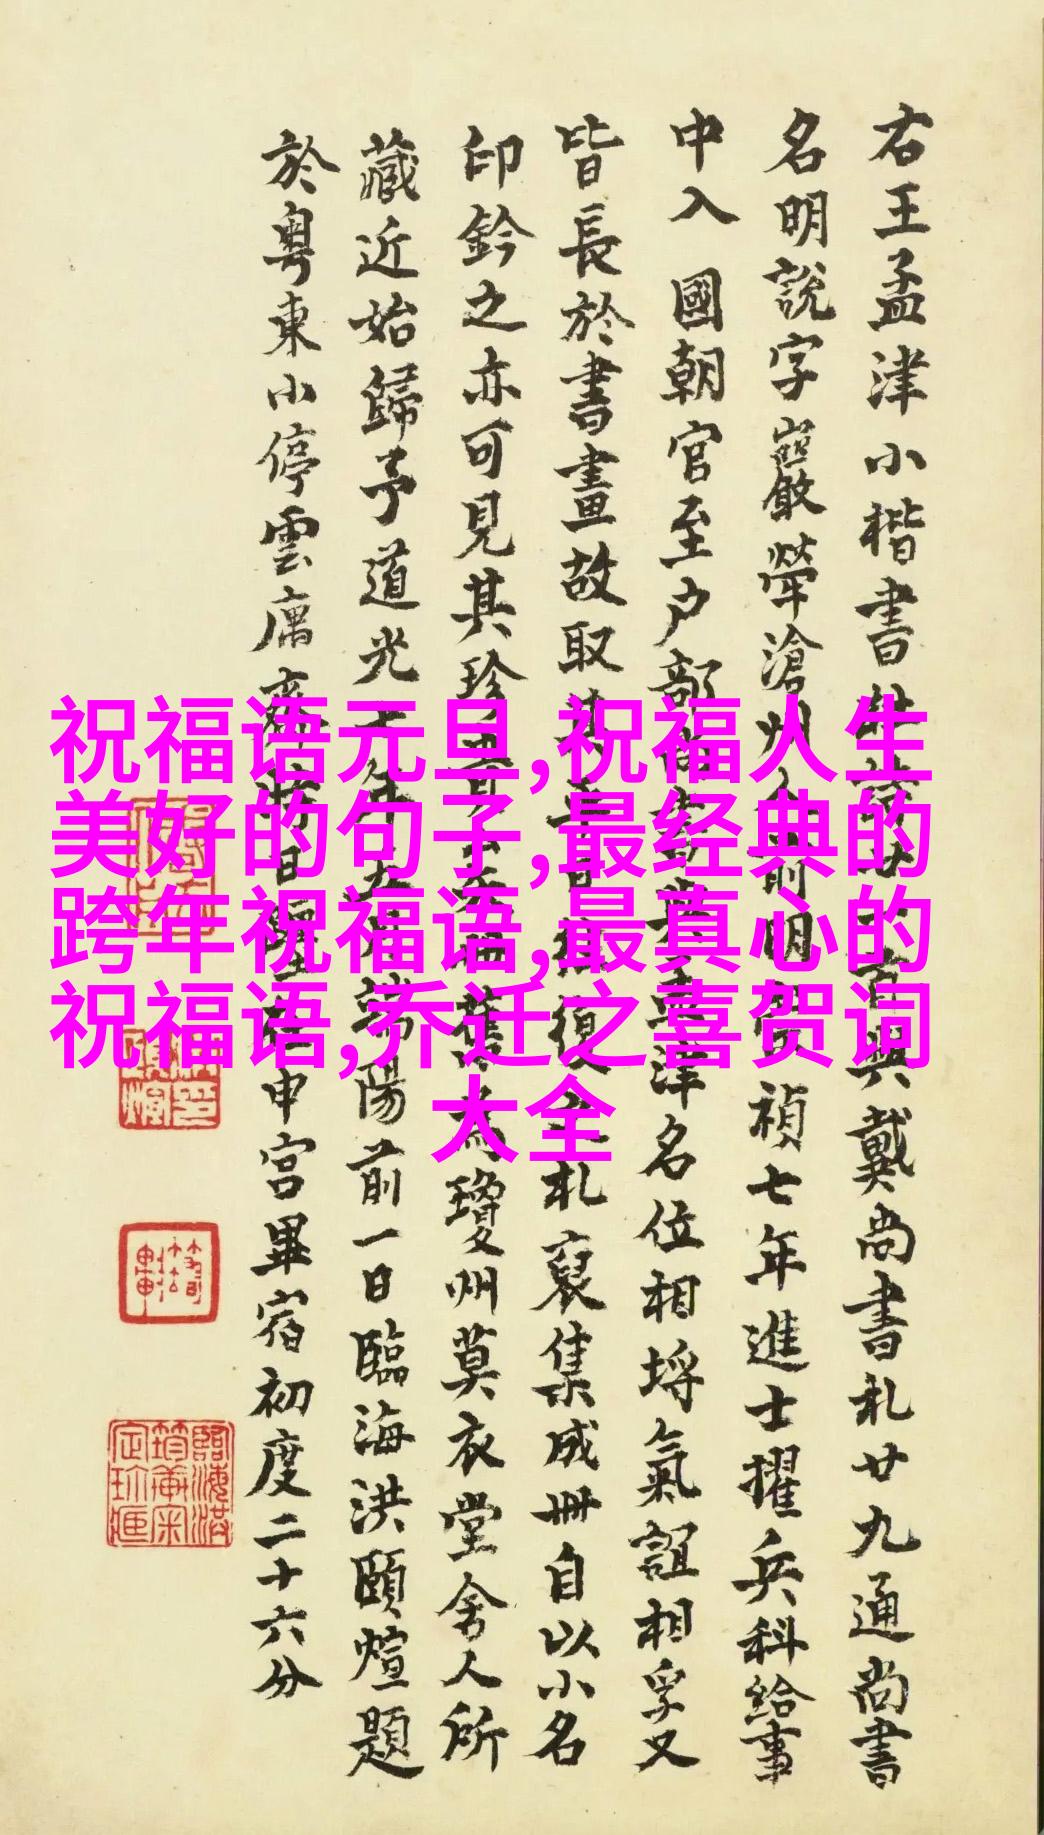 右王孟津小楷書
與戴尚書札廿九通尚書
名明說字巖犖滄州人前明
禎七年進士擢兵科給事
中入國朝官至户部
津名位相埒氣誼相孚又
皆長於書畫故取其
復
札裒集成冊自以小名
印鈐之亦可見其珍
舊為瓊州莫衣堂舍人所
藏近始歸予道光十年
陽前一日臨海洪頤煊題
於粵東小停雲寓齋時日躔
申宮畢宿初度二十六分
祝福语元旦,祝福人生
美好的句子,最经典的
跨年祝福语,最真心的
祝福语,乔迁之喜贺词
大全